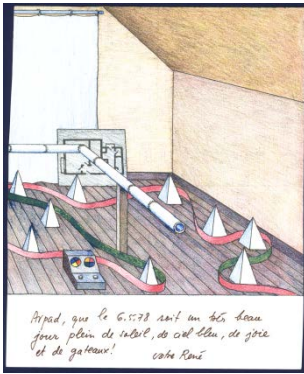 Arpad, que le 6.5.78 soit un très beau
jour plein de soleil, de ciel bleu, de joie
et de gateaux!
votre René